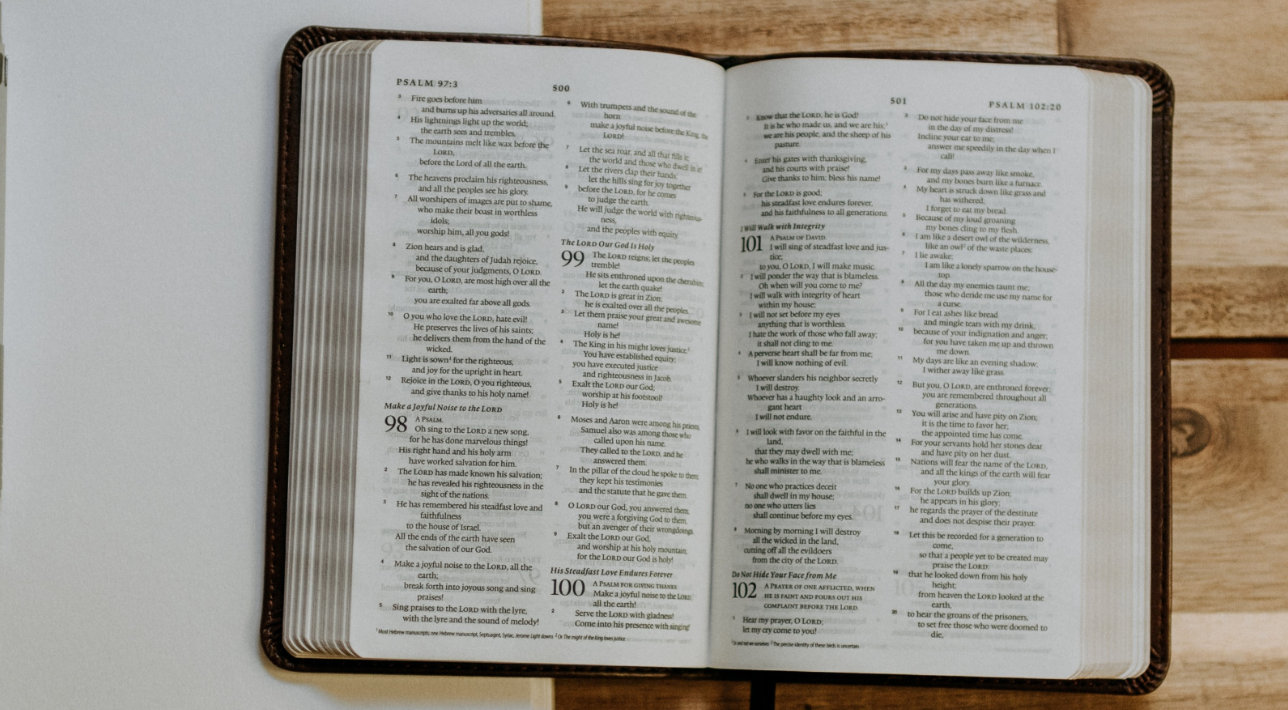 PSALM 97:3
500
3 Fire goes before him
and burns up his adversaries all around.
4 His lightnings light up the world;
the earth sees and trembles.
5 The mountains melt like wax before the
LORD,
before the Lord of all the earth.
6 The heavens proclaim his righteousness,
and all the peoples see his glory.
7 All worshipers of images are put to shame,
who make their boast in worthless
idols;
worship him, all you gods!
8 Zion hears and is glad,
and the daughters of Judah rejoice,
because of your judgments, O LORD.
9 For you, O LORD, are most high over all the
earth;
you are exalted far above all gods.
10 O you who love the LORD, hate evil!
He preserves the lives of his saints;
he delivers them from the hand of the
wicked.
11 Light is sown¹ for the righteous,
and joy for the upright in heart.
12 Rejoice in the LORD, O you righteous,
and give thanks to his holy name!
Make a Joyful Noise to the LORD
98 A PSALM.
Oh sing to the LORD a new song,
for he has done marvelous things!
His right hand and his holy arm
have worked salvation for him.
2 The LORD has made known his salvation;
he has revealed his righteousness in the
sight of the nations.
3 He has remembered his steadfast love and
faithfulness
to the house of Israel.
All the ends of the earth have seen
the salvation of our God.
4 Make a joyful noise to the LORD, all the
earth;
break forth into joyous song and sing
praises!
5 Sing praises to the LORD with the lyre,
with the lyre and the sound of melody!
6 With trumpets and the sound of the
horn
make a joyful noise before the King, the
LORD!
7 Let the sea roar, and all that fills it;
the world and those who dwell in it!
8 Let the rivers clap their hands;
let the hills sing for joy together
9 before the LORD, for he comes
to judge the earth.
He will judge the world with righteous-
ness,
and the peoples with equity.
The LORD Our God Is Holy
99 The LORD reigns; let the peoples
tremble!
He sits enthroned upon the cherubim;
let the earth quake!
2 The LORD is great in Zion;
he is exalted over all the peoples.
3 Let them praise your great and awesome
name!
Holy is he!
4 The King in his might loves justice.²
You have established equity;
you have executed justice
and righteousness in Jacob.
5 Exalt the LORD our God;
worship at his footstool!
Holy is he!
6 Moses and Aaron were among his priests,
Samuel also was among those who
called upon his name.
They called to the LORD, and he
answered them.
7 In the pillar of the cloud he spoke to them;
they kept his testimonies
and the statute that he gave them.
8 O LORD our God, you answered them;
you were a forgiving God to them,
but an avenger of their wrongdoings.
9 Exalt the LORD our God,
and worship at his holy mountain;
for the LORD our God is holy!
His Steadfast Love Endures Forever
100 A PSALM FOR GIVING THANKS.
Make a joyful noise to the LORD,
all the earth!
2 Serve the LORD with gladness!
Come into his presence with singing!
¹ Most Hebrew manuscripts; one Hebrew manuscript, Septuagint, Syriac, Jerome Light dawns ² Or The might of the King loves justice
501
PSALM 102:20
3 Know that the LORD, he is God!
It is he who made us, and we are his;¹
we are his people, and the sheep of his
pasture.
4 Enter his gates with thanksgiving,
and his courts with praise!
Give thanks to him; bless his name!
5 For the LORD is good;
his steadfast love endures forever,
and his faithfulness to all generations.
I Will Walk with Integrity
101 A PSALM OF DAVID.
I will sing of steadfast love and jus-
tice;
to you, O LORD, I will make music.
2 I will ponder the way that is blameless.
Oh when will you come to me?
I will walk with integrity of heart
within my house;
3 I will not set before my eyes
anything that is worthless.
I hate the work of those who fall away;
it shall not cling to me.
4 A perverse heart shall be far from me;
I will know nothing of evil.
5 Whoever slanders his neighbor secretly
I will destroy.
Whoever has a haughty look and an arro-
gant heart
I will not endure.
6 I will look with favor on the faithful in the
land,
that they may dwell with me;
he who walks in the way that is blameless
shall minister to me.
7 No one who practices deceit
shall dwell in my house;
no one who utters lies
shall continue before my eyes.
8 Morning by morning I will destroy
all the wicked in the land,
cutting off all the evildoers
from the city of the LORD.
Do Not Hide Your Face from Me
102 A PRAYER OF ONE AFFLICTED, WHEN
HE IS FAINT AND POURS OUT HIS
COMPLAINT BEFORE THE LORD.
1 Hear my prayer, O LORD;
let my cry come to you!
2 Do not hide your face from me
in the day of my distress!
Incline your ear to me;
answer me speedily in the day when I
call!
3 For my days pass away like smoke,
and my bones burn like a furnace.
4 My heart is struck down like grass and
has withered;
I forget to eat my bread.
5 Because of my loud groaning
my bones cling to my flesh.
6 I am like a desert owl of the wilderness,
like an owl² of the waste places;
7 I lie awake;
I am like a lonely sparrow on the house-
top.
8 All the day my enemies taunt me;
those who deride me use my name for
a curse.
9 For I eat ashes like bread
and mingle tears with my drink,
10 because of your indignation and anger;
for you have taken me up and thrown
me down.
11 My days are like an evening shadow;
I wither away like grass.
12 But you, O LORD, are enthroned forever;
you are remembered throughout all
generations.
13 You will arise and have pity on Zion;
it is the time to favor her;
the appointed time has come.
14 For your servants hold her stones dear
and have pity on her dust.
15 Nations will fear the name of the LORD,
and all the kings of the earth will fear
your glory.
16 For the LORD builds up Zion;
he appears in his glory;
17 he regards the prayer of the destitute
and does not despise their prayer.
18 Let this be recorded for a generation to
come,
so that a people yet to be created may
praise the LORD:
19 that he looked down from his holy
height;
from heaven the LORD looked at the
earth,
20 to hear the groans of the prisoners,
to set free those who were doomed to
die,
¹ Or and not we ourselves ² The precise identity of these birds is uncertain